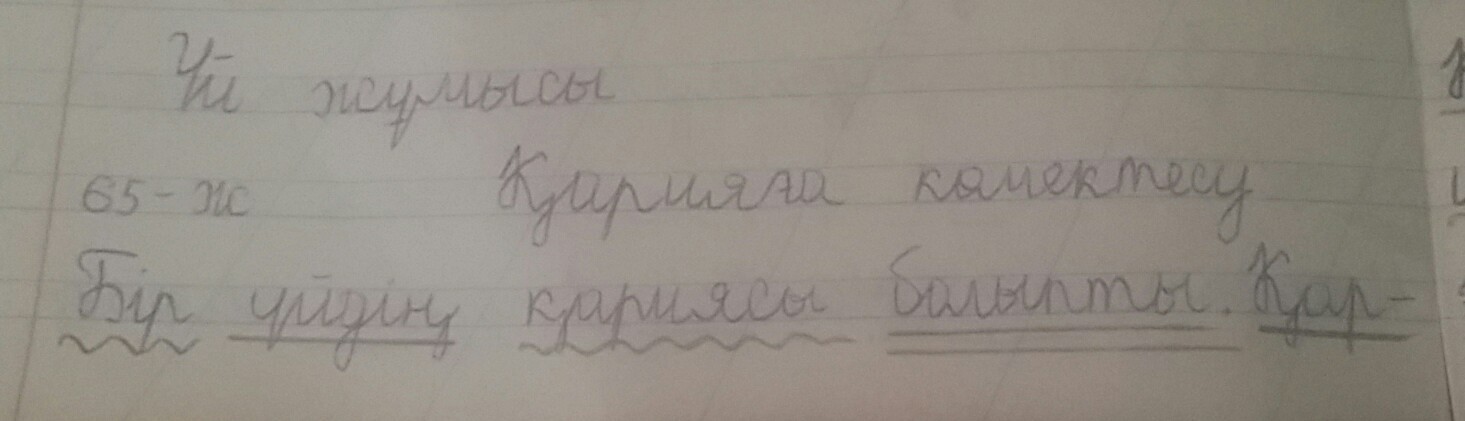 Үй жұмысы
65-ж Қарияға көмектесу
Бір үйдің қариясы болыпты. Қар-